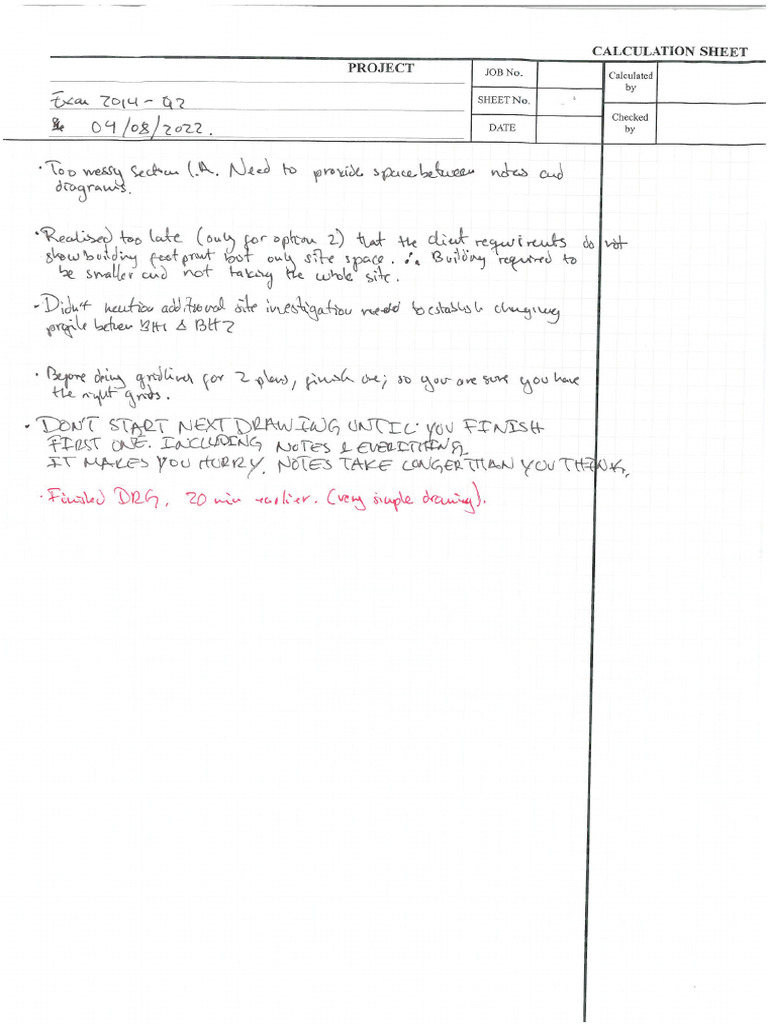 CALCULATION SHEET
PROJECT
JOB No.
Calculated
by
Exam 2014 - Q2
SHEET No.
04/08/2022.
DATE
Checked
by
· Too messy section 1.A. Need to provide space between notes and
diagrams.
· Realised too late (only for option 2) that the client requirements do not
show building footprint but only site space. ∴ Building required to
be smaller and not taking the whole site.
- Didn't mention additional site investigation need to establish changing
profile between BH1 & BH2
· Before doing gridlines for 2 plans, finish one; so you are sure you have
the right grids.
· DON'T START NEXT DRAWING UNTIL YOU FINISH
FIRST ONE. INCLUDING NOTES & EVERITHING,
IT MAKES YOU HURRY. NOTES TAKE LONGER THAN YOU THINK.
· Finished DRG, 20 min earlier. (very simple drawing).